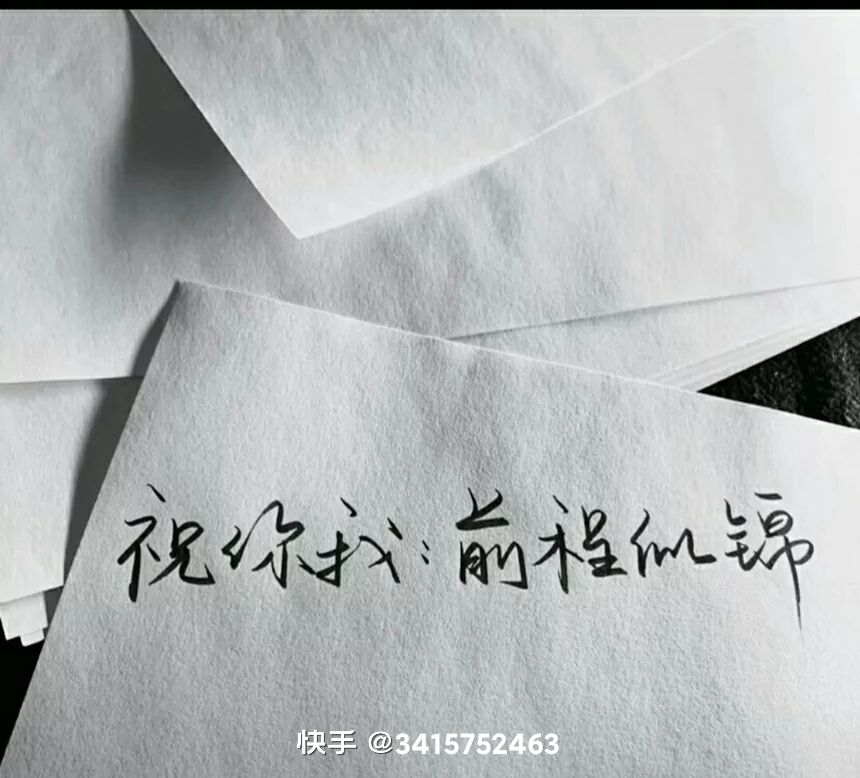 祝你我:前程似锦
快手 @3415752463